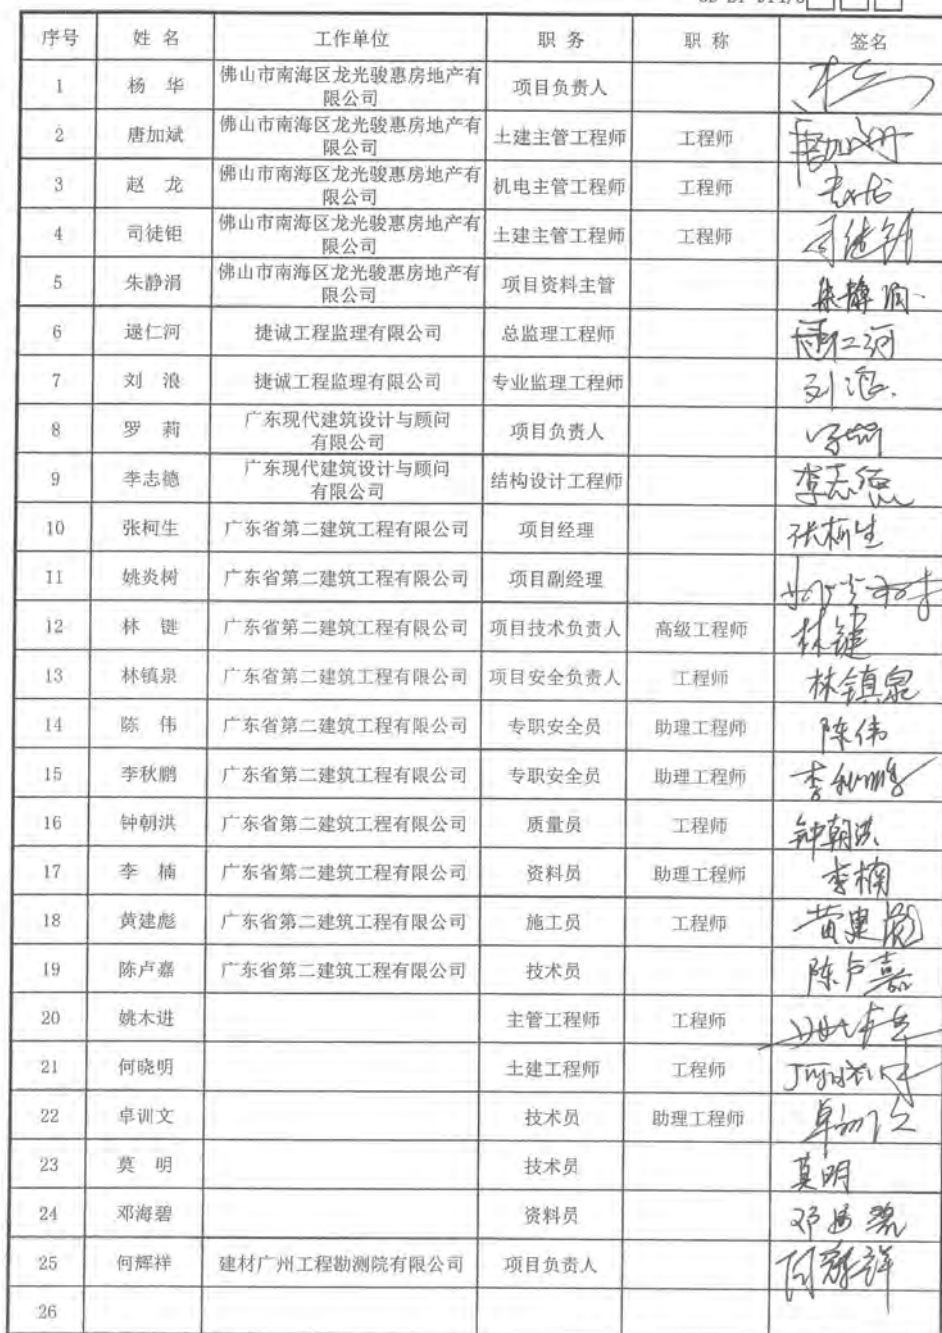 序号 姓 名 工作单位 职 务 职 称 签名
1 杨 华 佛山市南海区龙光骏惠房地产有限公司 项目负责人
2 唐加斌 佛山市南海区龙光骏惠房地产有限公司 土建主管工程师 工程师 唐加斌
3 赵 龙 佛山市南海区龙光骏惠房地产有限公司 机电主管工程师 工程师 赵龙
4 司徒钜 佛山市南海区龙光骏惠房地产有限公司 土建主管工程师 工程师 司徒钜
5 朱静涓 佛山市南海区龙光骏惠房地产有限公司 项目资料主管 朱静涓
6 逷仁河 捷诚工程监理有限公司 总监理工程师
7 刘 浪 捷诚工程监理有限公司 专业监理工程师 刘浪
8 罗 莉 广东现代建筑设计与顾问有限公司 项目负责人 罗莉
9 李志德 广东现代建筑设计与顾问有限公司 结构设计工程师 李志德
10 张柯生 广东省第二建筑工程有限公司 项目经理 张柯生
11 姚炎树 广东省第二建筑工程有限公司 项目副经理 姚炎树
12 林 键 广东省第二建筑工程有限公司 项目技术负责人 高级工程师 林键
13 林镇泉 广东省第二建筑工程有限公司 项目安全负责人 工程师 林镇泉
14 陈 伟 广东省第二建筑工程有限公司 专职安全员 助理工程师 陈伟
15 李秋鹏 广东省第二建筑工程有限公司 专职安全员 助理工程师 李秋鹏
16 钟朝洪 广东省第二建筑工程有限公司 质量员 工程师 钟朝洪
17 李 楠 广东省第二建筑工程有限公司 资料员 助理工程师 李楠
18 黄建彪 广东省第二建筑工程有限公司 施工员 工程师 黄建彪
19 陈卢嘉 广东省第二建筑工程有限公司 技术员 陈卢嘉
20 姚木进 主管工程师 工程师
21 何晓明 土建工程师 工程师
22 卓训文 技术员 助理工程师 卓训文
23 莫 明 技术员 莫明
24 邓海碧 资料员 邓海碧
25 何辉祥 建材广州工程勘测院有限公司 项目负责人 何辉祥
26